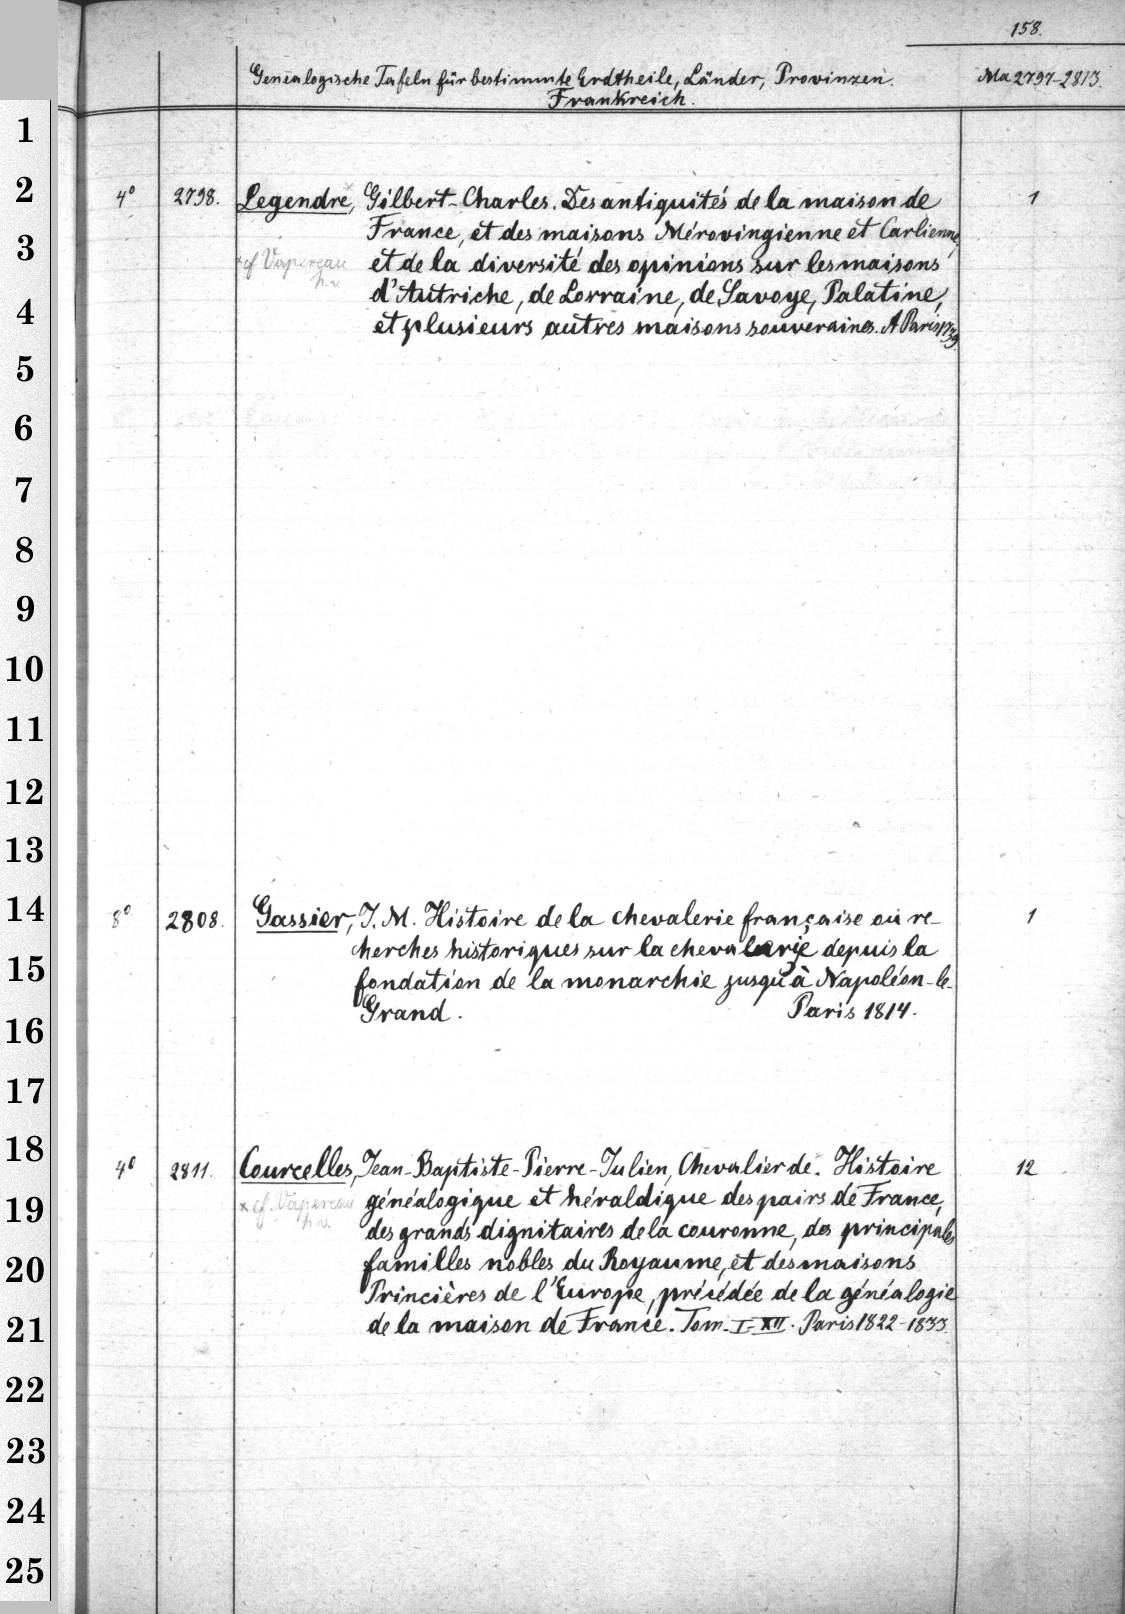 158.
Genealogische Tafeln für bestimmte Erdtheile, Länder, Provinzen. Ma 2797-2813.
Frankreich.
1
2
4° 2798. Legendre, Gilbert-Charles. Des antiquités de la maison de 1
France, et des maisons Mérovingienne et Carlienne,
3
× cf Vapereau et de la diversité des opinions sur les maisons
h.v.
4
d'Autriche, de Lorraine, de Savoye, Palatine,
et plusieurs autres maisons souveraines. A Paris 1739.
5
6
7
8
9
10
11
12
13
14
8° 2808. Gassier, J. M. Histoire de la chevalerie française où re- 1
cherches historiques sur la chevalerie depuis la
15
fondation de la monarchie jusqu'à Napoléon-le-
Grand. Paris 1814.
16
17
18
4° 2811. Courcelles, Jean-Baptiste-Pierre-Julien, Chevalier de. Histoire 12
× cf. Vapereau généalogique et héraldique des pairs de France,
h.v.
19
des grands dignitaires de la couronne, des principales
familles nobles du Royaume, et des maisons
20
Princières de l'Europe, précédée de la généalogie
de la maison de France. Tom. I-XII. Paris 1822-1833
21
22
23
24
25